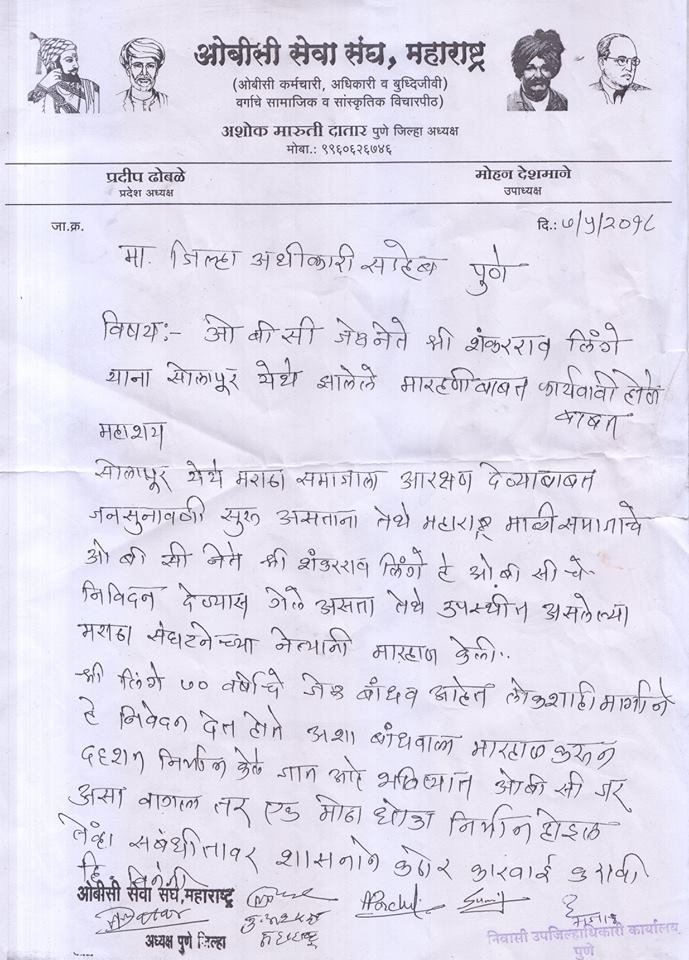 ओबीसी सेवा संघ, महाराष्ट्र
(ओबीसी कर्मचारी, अधिकारी व बुध्दिजीवी)
वर्गाचे सामाजिक व सांस्कृतिक विचारपीठ)
अशोक मारुती दातार पुणे जिल्हा अध्यक्ष
मोबा.: ९९६०६२६७४६
प्रदीप ढोबळे
प्रदेश अध्यक्ष
मोहन देशमाने
उपाध्यक्ष
जा.क्र.
दि.: ७/५/२०१८
मा. जिल्हा अधीकारी साहेब पुणे
विषय:- ओ बी सी जेष्ठ नेते श्री शंकरराव लिंगे
याना सोलापूर येथे झालेले मारहाणीबाबत कार्यवावी होणे
बाबत
महाशय
सोलापूर येथे मराठा समाजाला आरक्षण देव्याबाबत
जनसुनावणी सुरू असताना तेथे महाराष्ट्र माळी समाजाचे
ओ बी सी नेते श्री शंकरराव लिंगे हे ओ बी सी चे
निविदन देण्यास गेले असता तेथे उपस्थीत असलेल्या
मराठा संघटनेच्या नेत्यानी मारहाण केली..
श्री लिंगे ७० वर्षाचे जेष्ठ बांधव आहेत लोकशाही मार्गाने
हे निवेदन देत होते अशा बांधवाला मारहाण करून
दहशत निर्माण केले जात आहे भविष्यात ओ बी सी जर
असा वागला तर एक मोठा धोका निर्माण होइल
तेंव्हा सबंधीतावर शासनाने कठोर कारवाई करावी
हि विनंती
ओबीसी सेवा संघ,महाराष्ट्र
अध्यक्ष पुणे जिल्हा
निवासी उपजिल्हाधिकारी कार्यालय,
पुणे